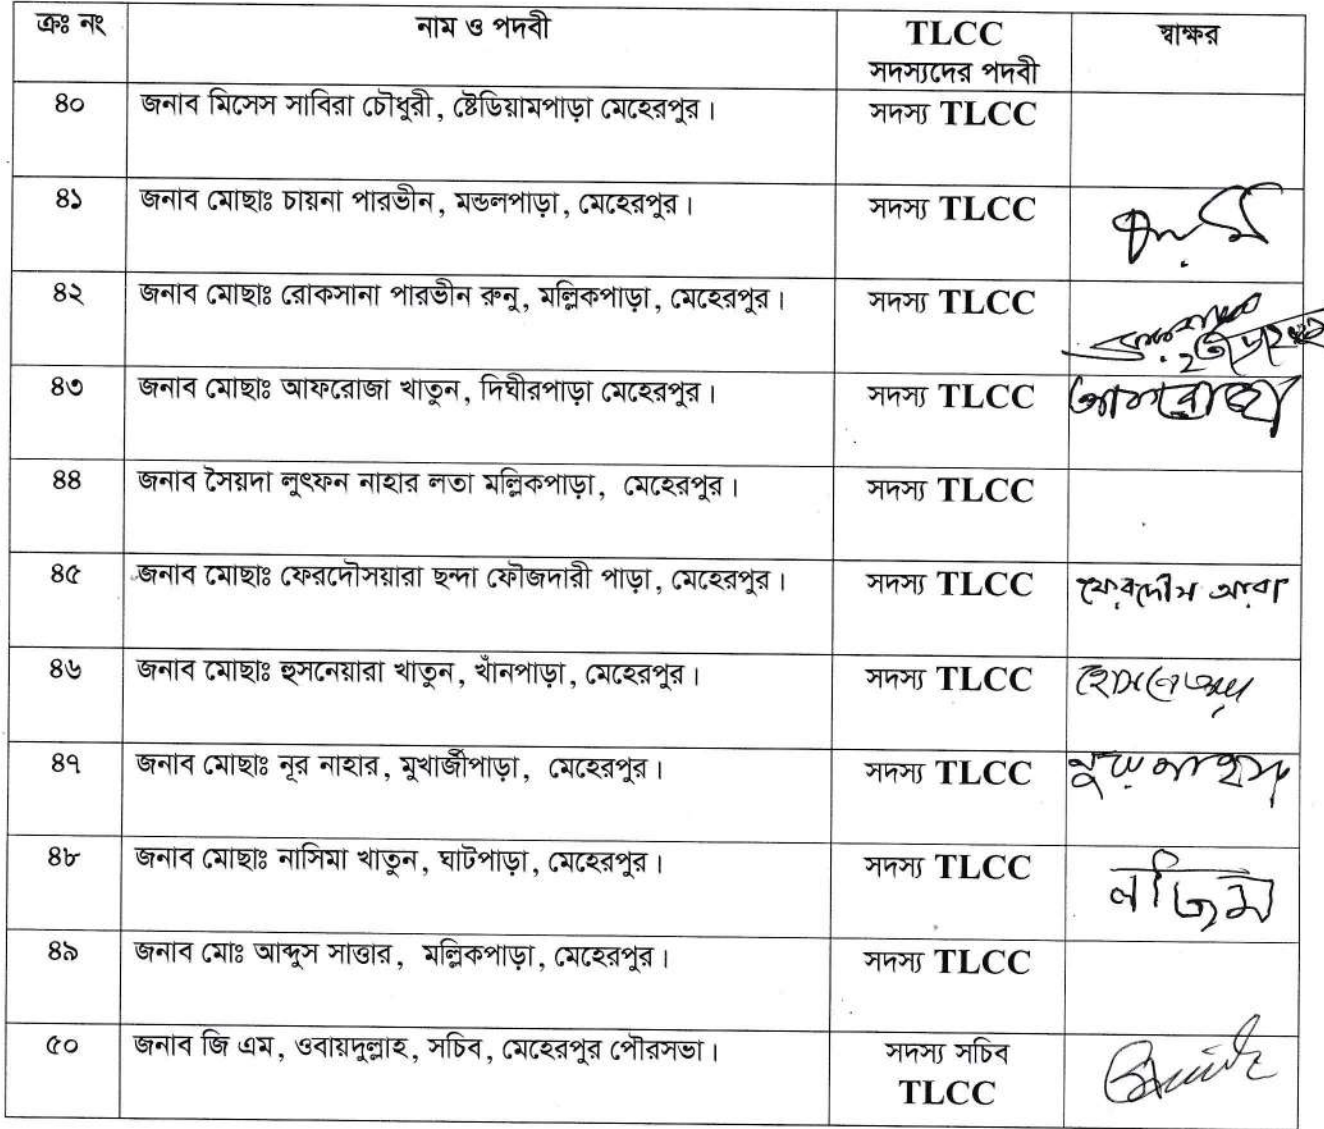 ক্রঃ নং নাম ও পদবী TLCC স্বাক্ষর
সদস্যদের পদবী
৪০ জনাব মিসেস সাবিরা চৌধুরী, ষ্টেডিয়ামপাড়া মেহেরপুর। সদস্য TLCC
৪১ জনাব মোছাঃ চায়না পারভীন, মন্ডলপাড়া, মেহেরপুর। সদস্য TLCC
৪২ জনাব মোছাঃ রোকসানা পারভীন রুনু, মল্লিকপাড়া, মেহেরপুর। সদস্য TLCC
৪৩ জনাব মোছাঃ আফরোজা খাতুন, দিঘীরপাড়া মেহেরপুর। সদস্য TLCC
৪৪ জনাব সৈয়দা লুৎফন নাহার লতা মল্লিকপাড়া, মেহেরপুর। সদস্য TLCC
৪৫ জনাব মোছাঃ ফেরদৌসয়ারা ছন্দা ফৌজদারী পাড়া, মেহেরপুর। সদস্য TLCC ফেরদৌস আরা
৪৬ জনাব মোছাঃ হুসনেয়ারা খাতুন, খাঁনপাড়া, মেহেরপুর। সদস্য TLCC
৪৭ জনাব মোছাঃ নূর নাহার, মুখার্জীপাড়া, মেহেরপুর। সদস্য TLCC
৪৮ জনাব মোছাঃ নাসিমা খাতুন, ঘাটপাড়া, মেহেরপুর। সদস্য TLCC
৪৯ জনাব মোঃ আব্দুস সাত্তার, মল্লিকপাড়া, মেহেরপুর। সদস্য TLCC
৫০ জনাব জি এম, ওবায়দুল্লাহ, সচিব, মেহেরপুর পৌরসভা। সদস্য সচিব
TLCC